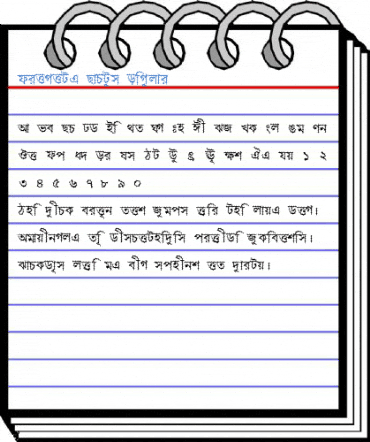 ফরত্তগত্তটএ ছাচটুস ড়গিুলার
আ ভব ছচ ঢড ইি থত ষ্ণগ ঃহ ঈী ঝজ খক ংল ঙম ণন
ঔত্ত ফপ ধ্দ ড়র ষস ঠট উু ৎৃ ঊূ ক্ষশ ঐএ যয় ১ ২
৩ ৪ ৫ ৬ ৭ ৮ ৯ ০
ঠহি দুীচক বরত্তৃন তত্তশ জুমপস ত্তরি টহি লায়এ ডত্তগ।
অমায়ীনগলএ তৃি ডীসচত্তটহদিুসি পরত্তীডি জুকবিত্তশসি।
ঝাচকড়াৃস লত্তি মএ বীগ সপহীনশ ত্তত দুারটয়।